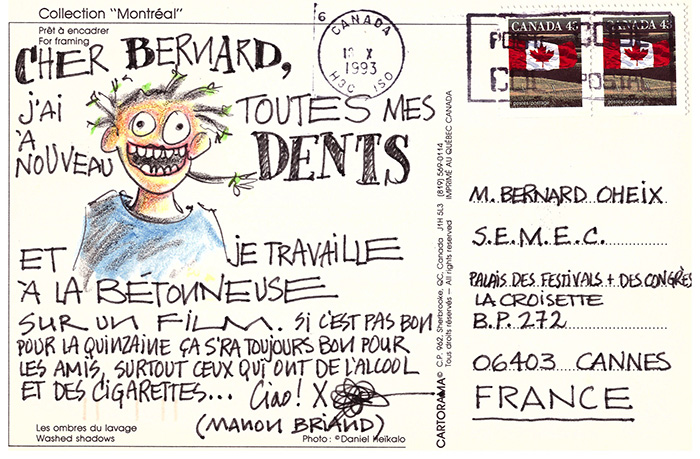 Collection "Montréal"
Prêt à encadrer
For framing
CHER BERNARD,
J'AI TOUTES MES
À NOUVEAU DENTS
ET JE TRAVAILLE
À LA BÉTONNEUSE
SUR UN FILM. SI C'EST PAS BON
POUR LA QUINZAINE ÇA S'RA TOUJOURS BON POUR
LES AMIS, SURTOUT CEUX QUI ONT DE L'ALCOOL
ET DES CIGARETTES... Ciao! X
(MANON BRIAND)
Les ombres du lavage
Washed shadows
Photo : ©Daniel Heïkalo
CARTORAMA© C.P. 962, Sherbrooke, QC, Canada J1H 5L3 (819) 569-0114
Tous droits réservés — All rights reserved IMPRIMÉ AU QUÉBEC CANADA
6
CANADA
18 X
1993
H3C 1S0
CANADA 43
CANADA 43
M. BERNARD OHEIX
S.E.M.E.C.
PALAIS DES FESTIVALS + DES CONGRÈS
LA CROISETTE
B.P. 272
06403 CANNES
FRANCE